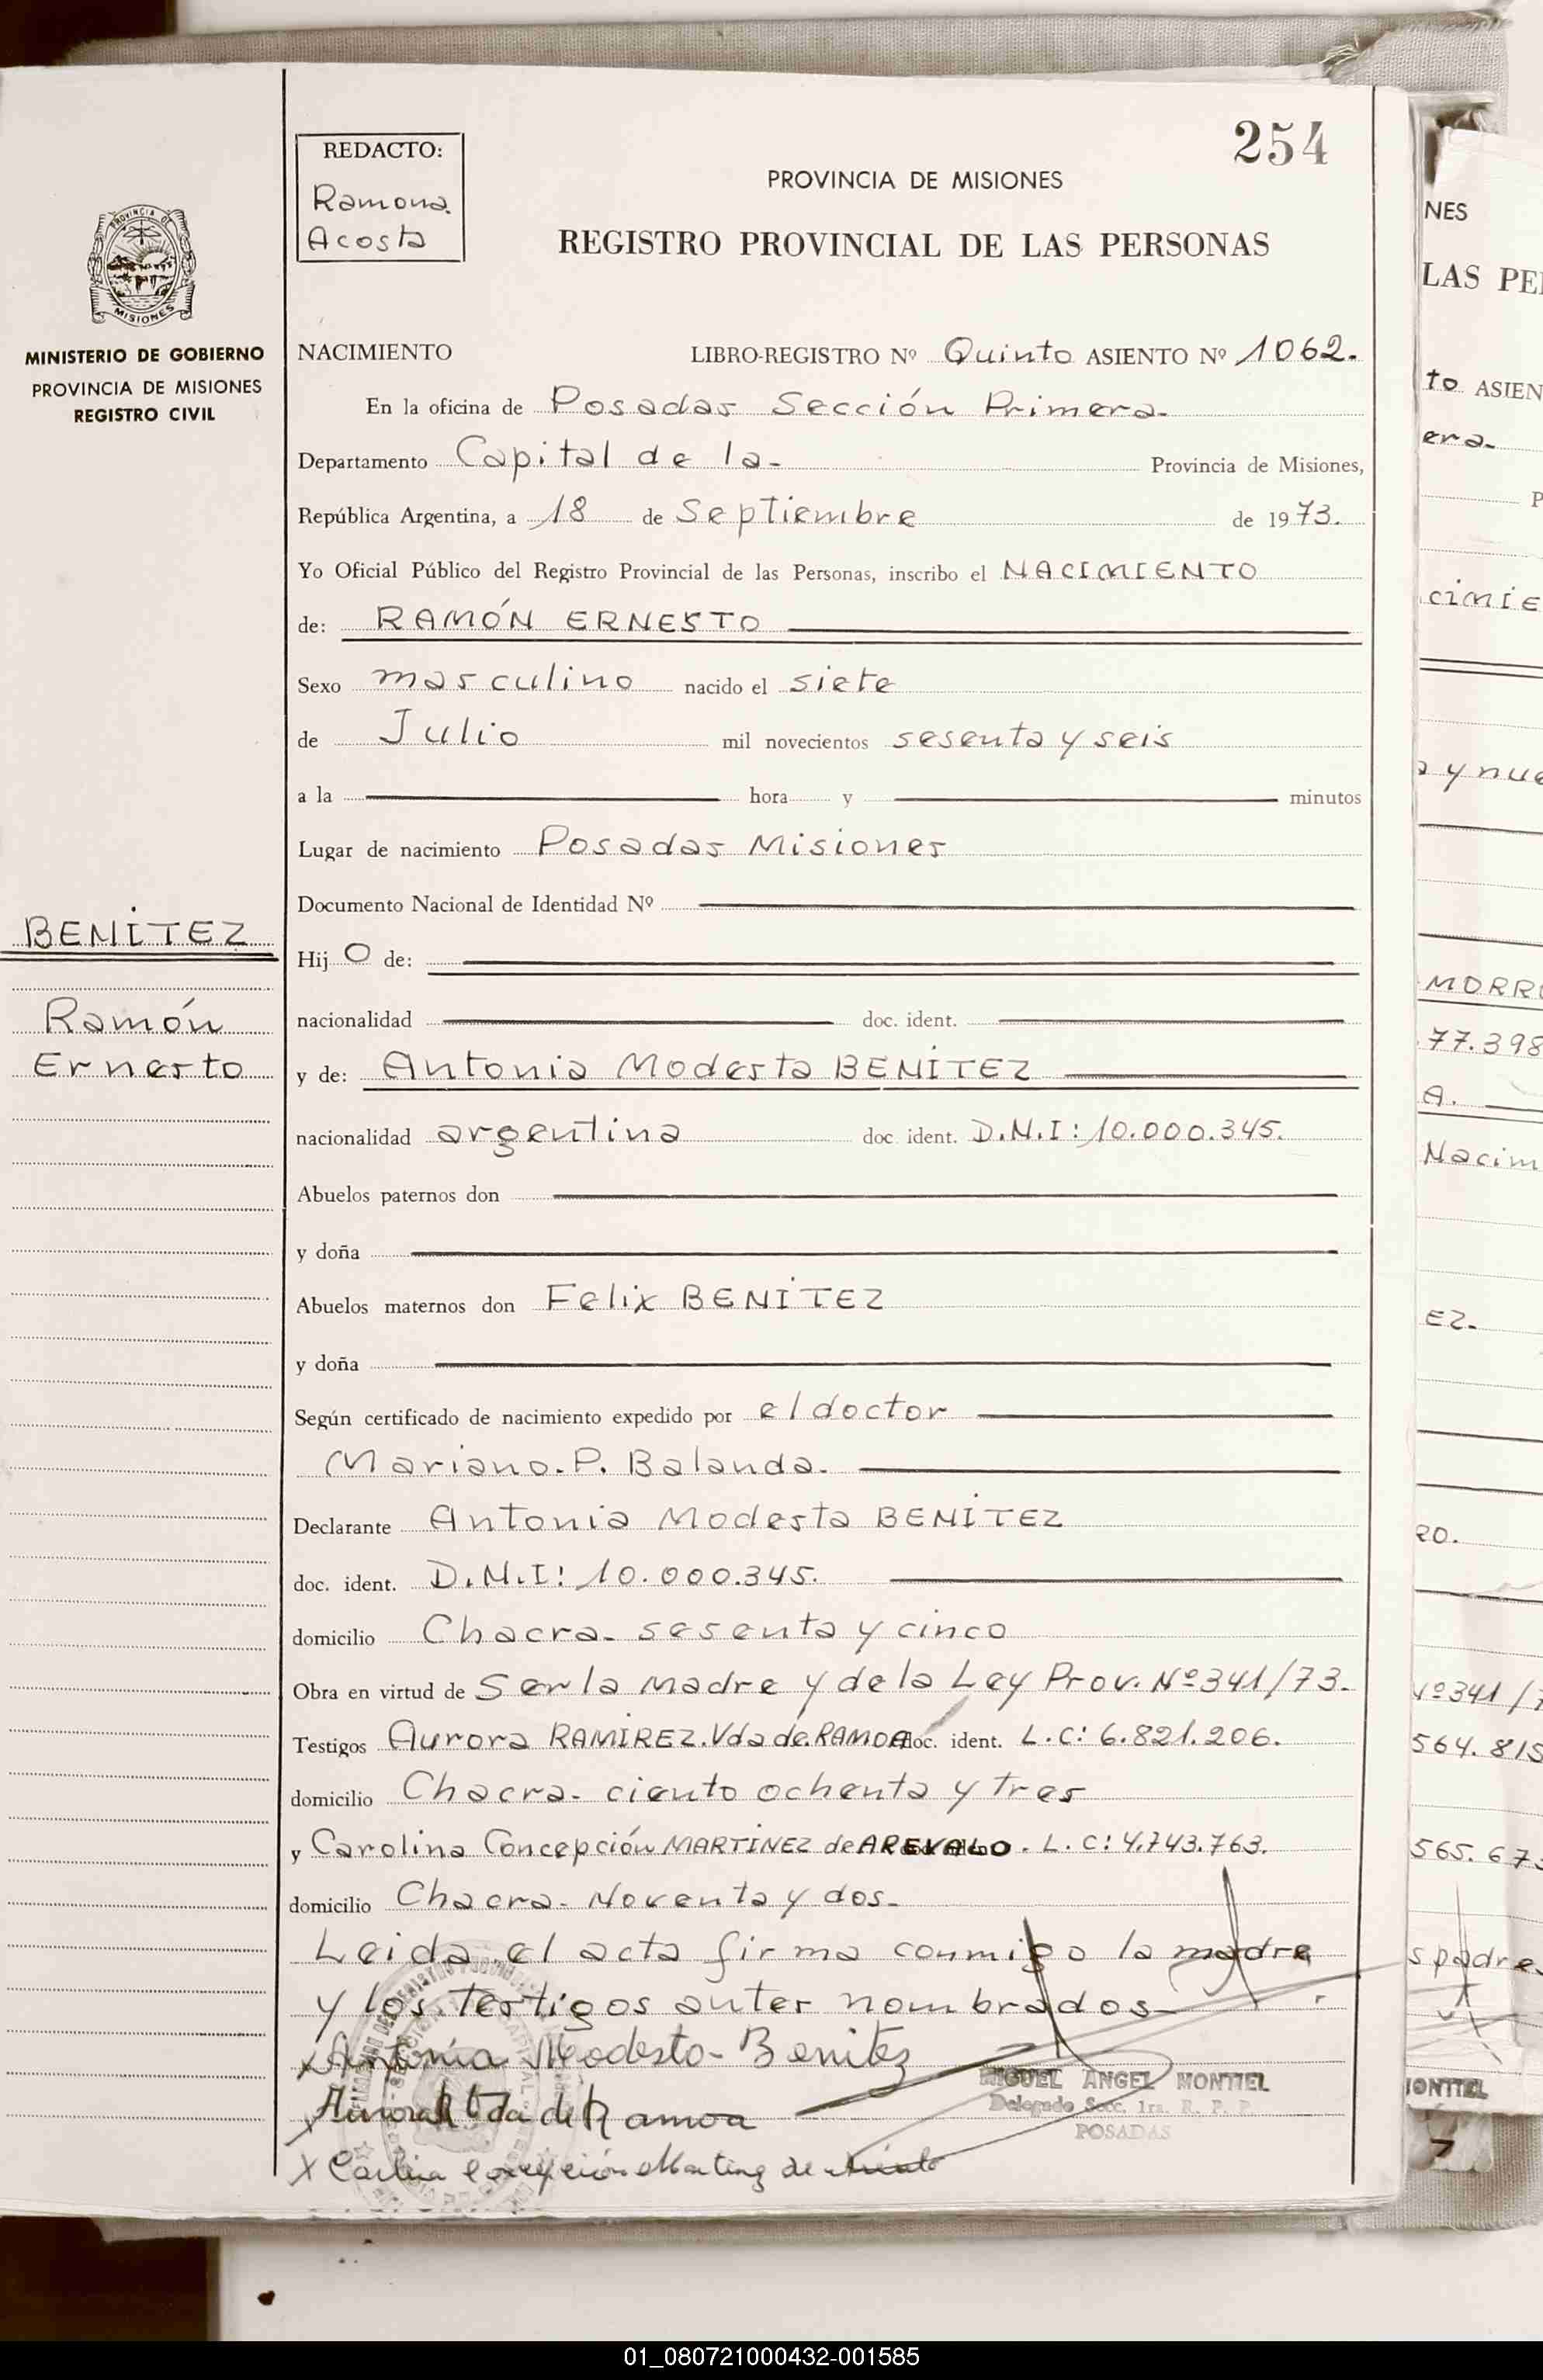 254
REDACTO:
Ramona
Acosta
PROVINCIA DE MISIONES
REGISTRO PROVINCIAL DE LAS PERSONAS
PROVINCIA DE
MISIONES
MINISTERIO DE GOBIERNO
PROVINCIA DE MISIONES
REGISTRO CIVIL
NACIMIENTO LIBRO-REGISTRO Nº Quinto ASIENTO Nº 1062.
En la oficina de Posadas Sección Primera-
Departamento Capital de la- Provincia de Misiones,
República Argentina, a 18 de Septiembre de 1973.
Yo Oficial Público del Registro Provincial de las Personas, inscribo el NACIMIENTO
de: RAMÓN ERNESTO
Sexo masculino nacido el siete
de Julio mil novecientos sesenta y seis
a la hora y minutos
Lugar de nacimiento Posadas Misiones
Documento Nacional de Identidad Nº
BENÍTEZ
Ramón
Ernesto
Hij O de:
nacionalidad doc. ident.
y de: Antonia Modesta BENÍTEZ
nacionalidad argentina doc. ident. D.N.I: 10.000.345.
Abuelos paternos don
y doña
Abuelos maternos don Felix BENÍTEZ
y doña
Según certificado de nacimiento expedido por el doctor
Mariano. P. Balanda.
Declarante Antonia Modesta BENÍTEZ
doc. ident. D.N.I: 10.000.345.
domicilio Chacra- sesenta y cinco
Obra en virtud de Ser la madre y de la Ley Prov. Nº 341/73.
Testigos Aurora RAMÍREZ. Vda de. RAMOA doc. ident. L.C: 6.821.206.
domicilio Chacra- ciento ochenta y tres
y Carolina Concepción MARTÍNEZ de AREVALO. L.C: 4.743.763.
domicilio Chacra- Noventa y dos-
Leida el acta firma conmigo la madre
y los testigos antes nombrados-
x Antonia Modesta- Benitez
x Aurora R Vda de Ramoa
MIGUEL ANGEL MONTIEL
Delegado Secc. 1ra. R. P. P.
POSADAS
x
NES
LAS PE
to ASIEN
era-
P
cimie
a y nue
MORR
77.398
A.
Nacim
EZ-
RO.
Nº 341/7
564.815
565.67
s padre
MONTIEL
01_080721000432-001585